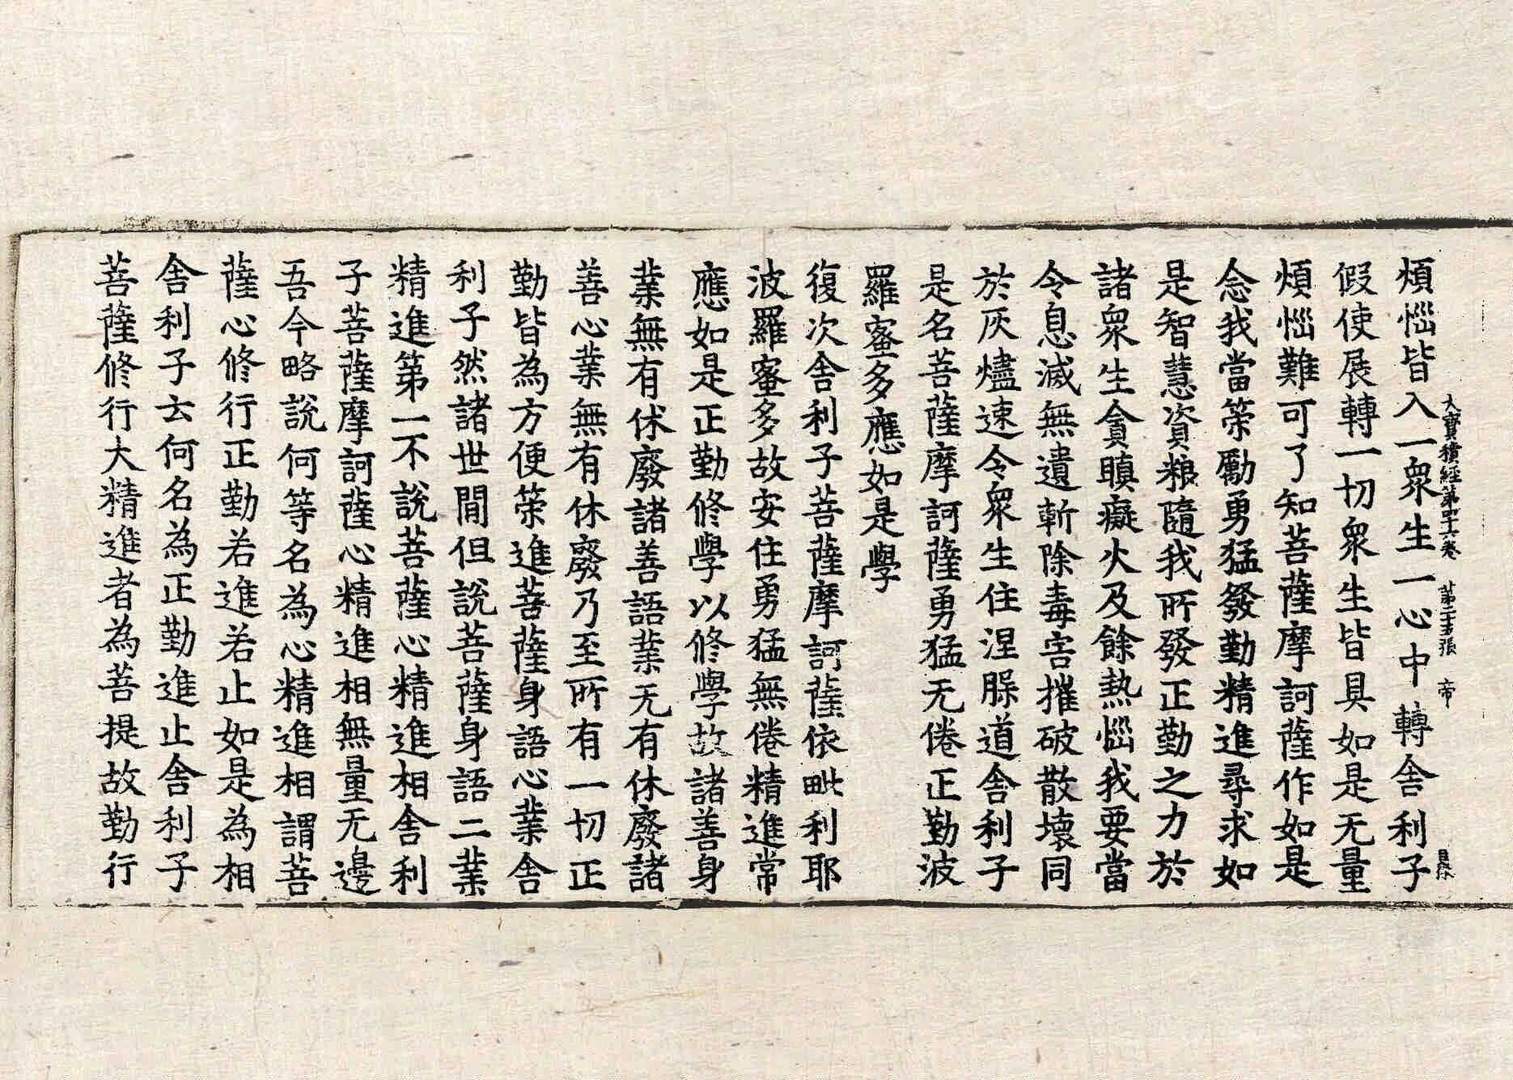 大寶積經第四十六卷 第二十五張 帝
煩惱皆入一衆生一心中轉舍利子
假使展轉一切衆生皆具如是无量
煩惱難可了知菩薩摩訶薩作如是
念我當策勵勇猛發勤精進尋求如
是智慧資粮隨我所發正勤之力於
諸衆生貪瞋癡火及餘熱惱我要當
令息滅無遺斬除毒害摧破散壞同
於灰燼速令衆生住涅槃道舍利子
是名菩薩摩訶薩勇猛无倦正勤波
羅蜜多應如是學
復次舍利子菩薩摩訶薩依毗利耶
波羅蜜多故安住勇猛無倦精進常
應如是正勤修學以修學故諸善身
業無有休廢諸善語業无有休廢諸
善心業無有休廢乃至所有一切正
勤皆為方便策進菩薩身語心業舍
利子然諸世間但說菩薩身語二業
精進第一不說菩薩心精進相舍利
子菩薩摩訶薩心精進相無量无邊
吾今略說何等名為心精進相謂菩
薩心修行正勤若進若止如是為相
舍利子云何名為正勤進止舍利子
菩薩修行大精進者為菩提故勤行